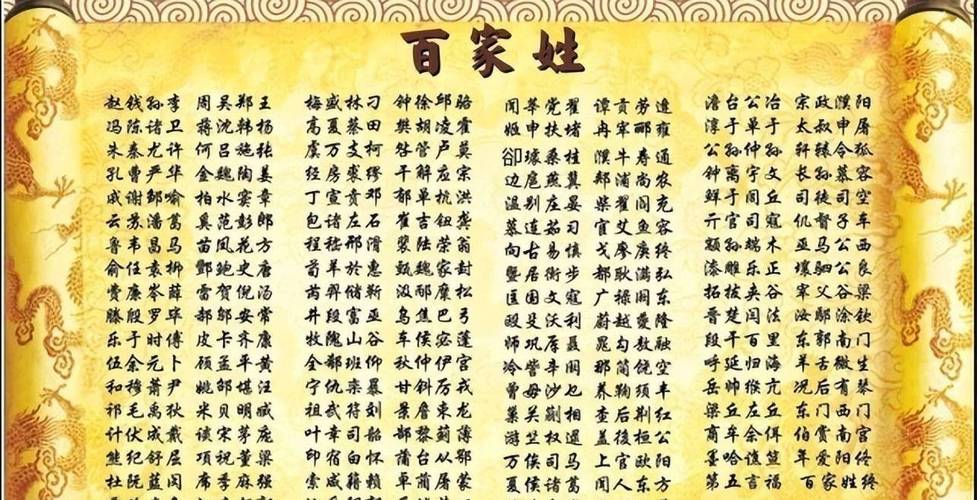 百家姓
赵钱孙李 周吴郑王
冯陈诸卫 蒋沈韩杨
朱秦尤许 何吕施张
孔曹严华 金魏陶姜
戚谢邹喻 柏水窦章
云苏潘葛 奚范彭郎
鲁韦昌马 苗凤花方
俞任袁柳 酆鲍史唐
费廉岑薛 雷贺倪汤
滕殷罗毕 郝邬安常
乐于时傅 皮卡齐康
伍余元卜 顾孟平黄
和穆萧尹 姚邵堪汪
祁毛禹狄 米贝明臧
计伏成戴 谈宋茅庞
熊纪舒屈 项祝董梁
杜阮蓝闵 席季麻强
梅盛林刁 钟徐邱骆
高夏蔡田 樊胡凌霍
虞万支柯 昝管卢莫
经房裘缪 干解应宗
丁宣贲邓 郁单杭洪
包诸左石 崔吉钮龚
程嵇邢滑 裴陆荣翁
荀羊於惠 甄魏家封
芮羿储靳 汲邴糜松
井段富巫 乌焦巴弓
牧隗山谷 车侯宓蓬
全郗班仰 秋仲伊宫
宁仇栾暴 甘斜厉戎
祖武符刘 景詹束龙
叶幸司韶 郜黎蓟薄
印宿白怀 蒲台从鄂
索咸籍赖
闻莘党翟 谭贡劳逄
姬申扶堵 冉宰郦雍
卻璩桑桂 濮牛寿通
边扈燕冀 郏浦尚农
温别庄晏 柴瞿阎充
慕连茹习 宦艾鱼容
向古易慎 戈廖庚终
暨居衡步 都耿满弘
匡国文寇 广禄阙东
殴殳沃利 蔚越夔隆
师巩厍聂 晁勾敖融
冷訾辛阚 那简饶空
曾毋沙乜 养鞠须丰
巢关蒯相 查后荆红
游竺权逯 盖後桓公
万俟司马 上官欧阳
澹台公冶 宗政濮阳
淳于单于 太叔申屠
公孙仲孙 轩辕令狐
钟离宇文 长孙慕容
鲜于闾丘 司徒司空
亓官司寇 仉督子车
颛孙端木 巫马公西
漆雕乐正 壤驷公良
拓拔夹谷 宰父谷梁
晋楚闫法 汝鄢涂钦
段干百里 东郭南门
呼延归海 羊舌微生
岳帅缑亢 况后有琴
梁丘左丘 东门西门
商牟佘佴 伯赏南宫
墨哈谯笪 年爱阳佟
第五言福 百家姓终